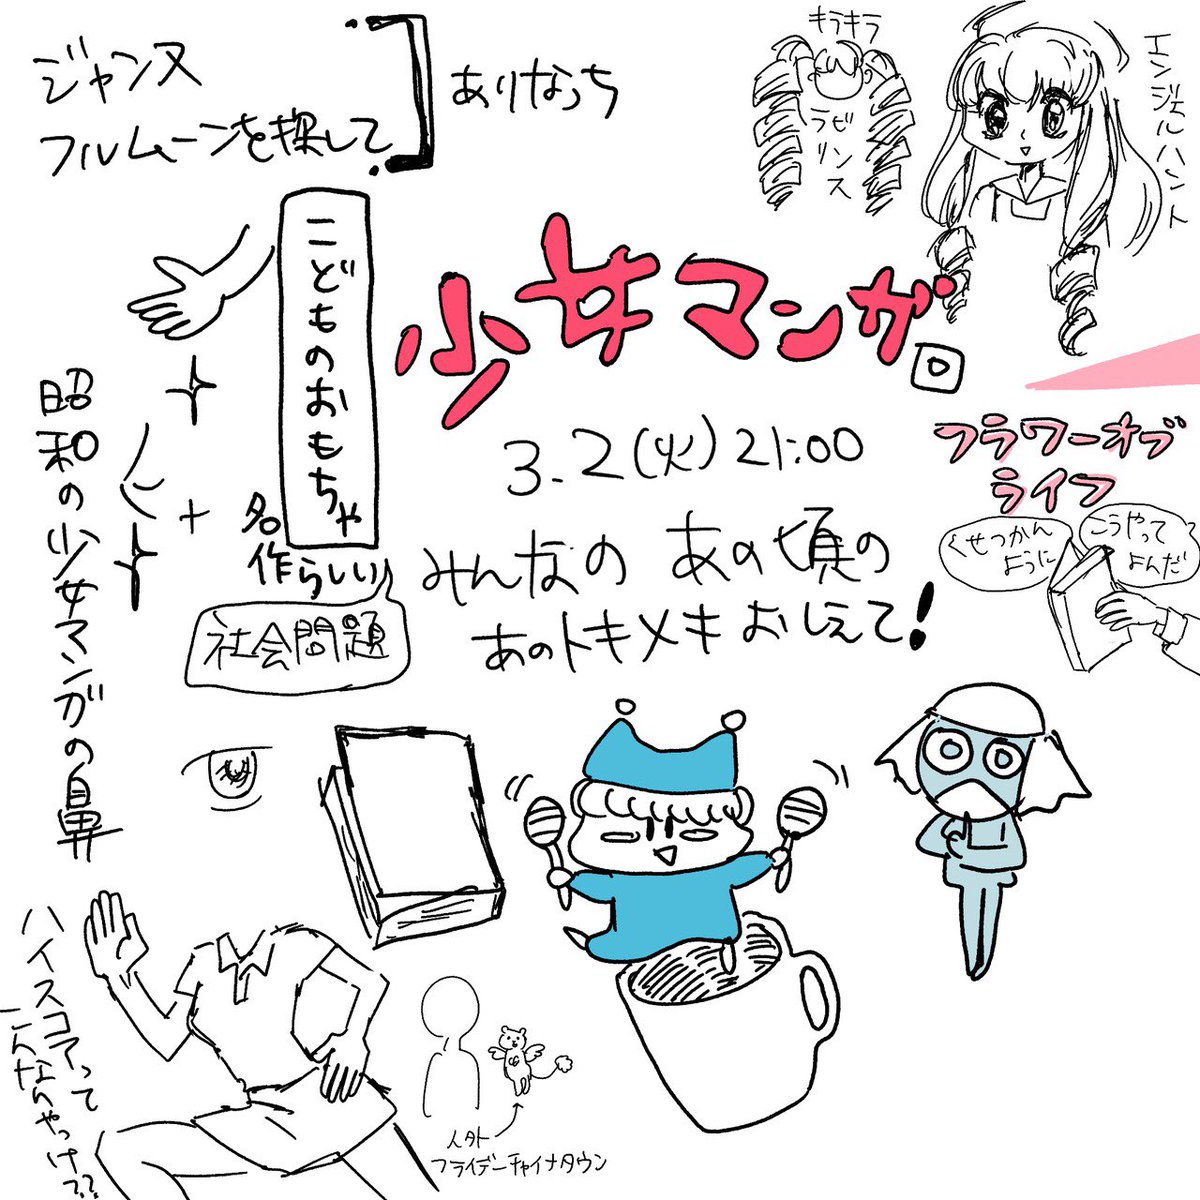 ジャンヌ
フルムーンを探して
ありなっち
キラキラ
ラビリンス
エンジェルハント
こどものおもちゃ
名作らしい
社会問題
少女マンガ。
3.2(火)21:00
みんなの あの頃の
あのトキメキおしえて!
フラワーオブ
ライフ
こうやって
よんだ
くせつかん
ように
昭和の少女マンガの鼻
ハイスコアって
こんなんやっけ??
人外
フライデーチャイナタウン